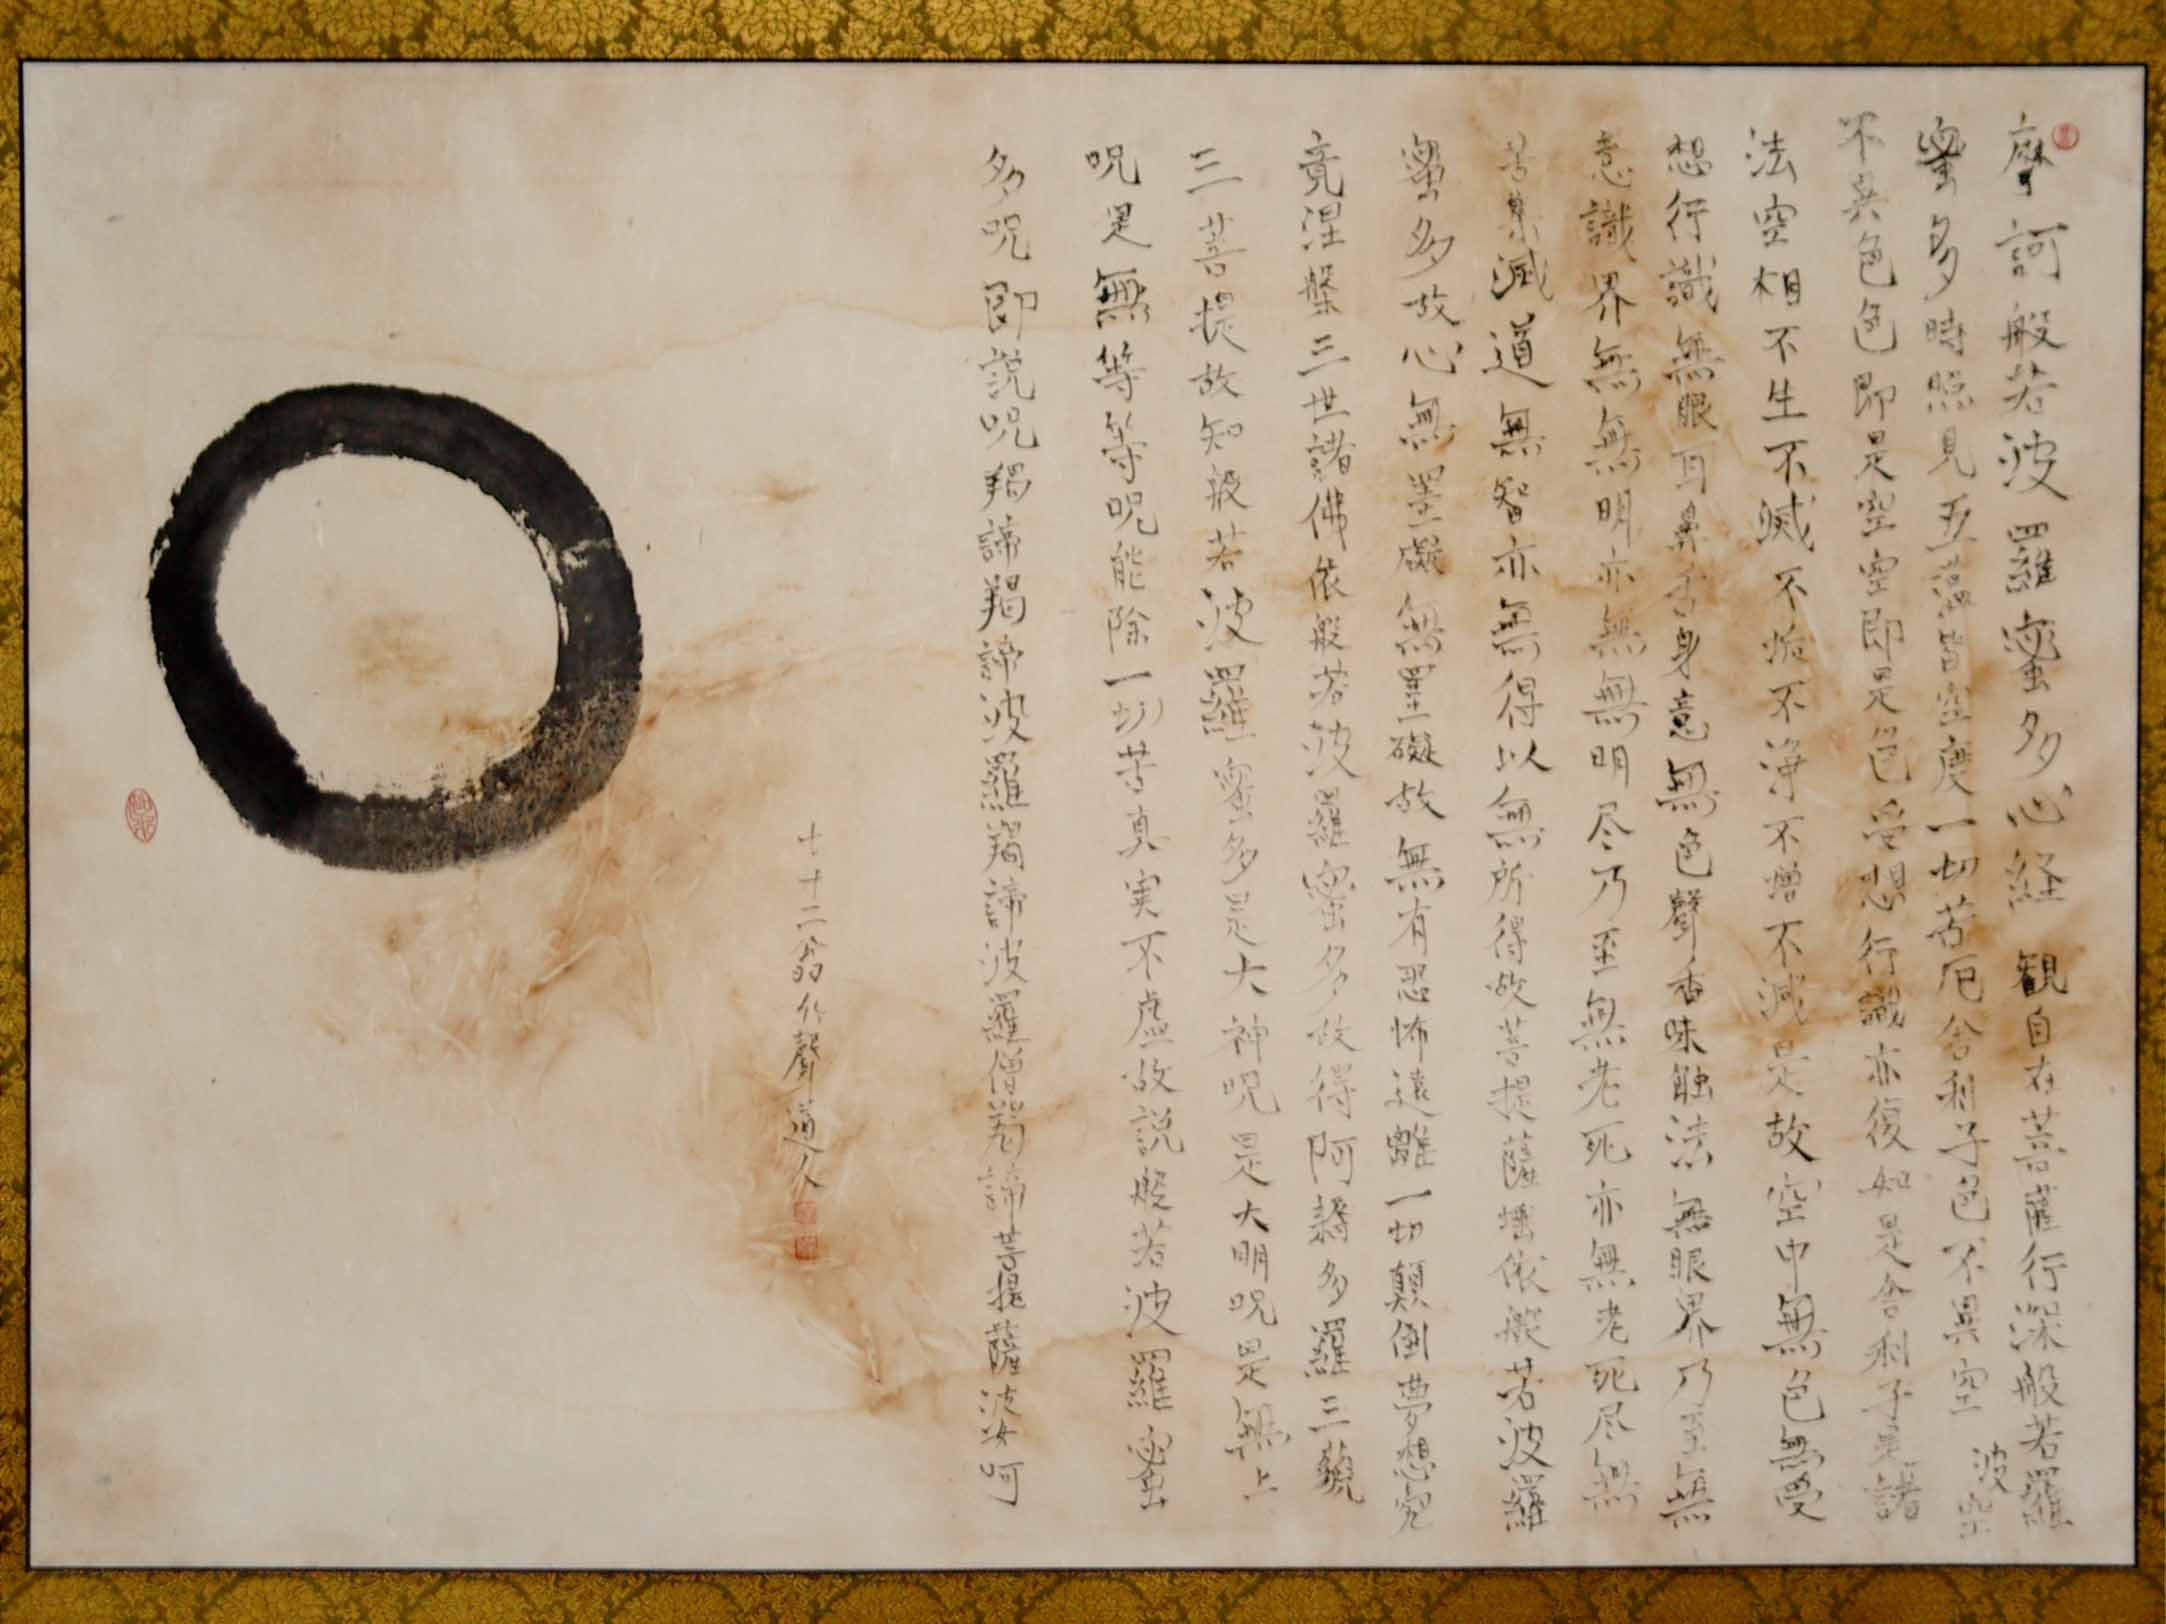 摩訶般若波羅蜜多心経 観自在菩薩行深般若羅
波
蜜多時照見五蘊皆空度一切苦厄舎利子色不異空
不異色色即是空空即是色受想行識亦復如是舎利子是諸
法空相不生不滅不垢不浄不増不減是故空中無色無受
想行識無眼耳鼻舌身意無色聲香味触法無眼界乃至無
意識界無無明亦無無明尽乃至無老死亦無老死尽無
苦集滅道無智亦無得以無所得故菩提薩埵依般若波羅
蜜多故心無罣礙無罣礙故無有恐怖遠離一切顛倒夢想究
竟涅槃三世諸佛依般若波羅蜜多故得阿耨多羅三藐
三菩提故知般若波羅蜜多是大神呪是大明呪是無上
呪是無等等呪能除一切苦真実不虚故説般若波羅蜜
多呪即説呪羯諦羯諦波羅羯諦波羅僧羯諦菩提薩婆訶
七十二翁竹聲道人